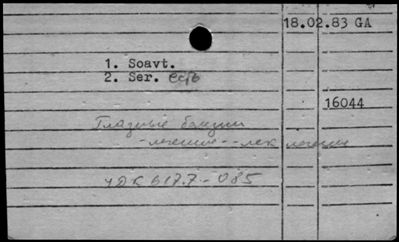 18.02.83 GA
1. Soavt.
2. Ser. есть
16044
Глазные банки
-лечение--лек лечения
УДК 617.7-085